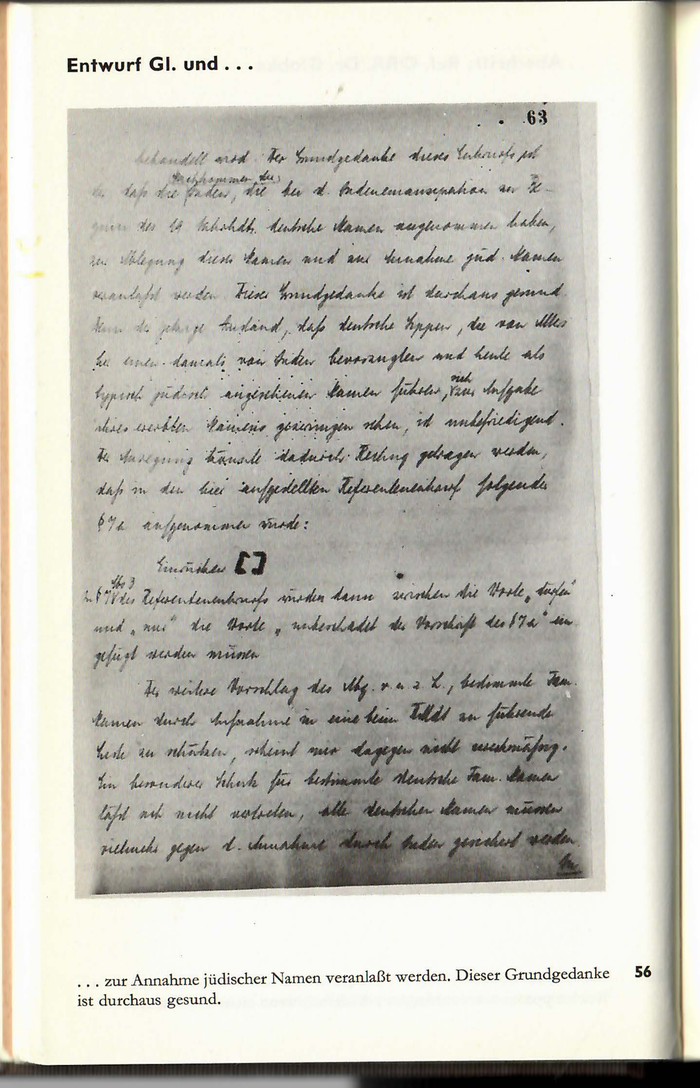 Entwurf Gl. und . . .
63
behandelt wird. Der Grundgedanke dieses Entwurfs ist
daß die Juden, die bei d. Judenemanzipation zu Be-
Nachkommen der
ginn des 19. Jahrhdts. deutsche Namen angenommen haben,
zur Ablegung dieser Namen und zur Annahme jüd. Namen
veranlaßt werden. Dieser Grundgedanke ist durchaus gesund.
Denn der jetzige Zustand, daß deutsche Sippen, die von Alters
her einen damals von Juden bevorzugten und heute als
typisch jüdisch angesehenen Namen führen, sich zur Aufgabe
ihres ererbten Namens gezwungen sehen, ist unbefriedigend.
Der Anregung könnte dadurch Rechng getragen werden,
daß in den hier aufgestellten Referentenentwurf folgender
§ 7a aufgenommen würde:
Einrücken []
Abs 3
In § 7 des Referentenentwurfs würden dann zwischen die Worte „dürfen"
und „nur" die Worte „unbeschadet der Vorschrift des § 7a" ein-
gefügt werden müssen
Der weitere Vorschlag des Abg. v. u. z. L., bestimmte Fam.
Namen durch Aufnahme in eine beim zu führende
Liste zu schützen, scheint mir dagegen nicht zweckmäßig.
Ein besonderer Schutz für bestimmte deutsche Fam. Namen
läßt sich nicht vertreten, alle deutschen Namen müssen
vielmehr gegen d. Annahme durch Juden gesichert werden.
. . . zur Annahme jüdischer Namen veranlaßt werden. Dieser Grundgedanke
ist durchaus gesund.
56